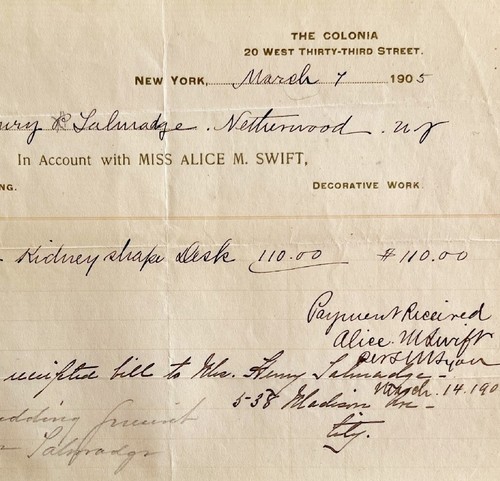 THE COLONIA
20 WEST THIRTY-THIRD STREET.
NEW YORK, March 7 1905
Talmadge. Netherwood. NJ
In Account with MISS ALICE M. SWIFT,
NG. DECORATIVE WORK.
Kidney shape Desk 110.00 $110.00
Payment Received
Alice M Swift
March. 14. 190
receipted bill to Mrs. Henry Talmadge
538 Madison Ave
City.
wedding present
Talmadge